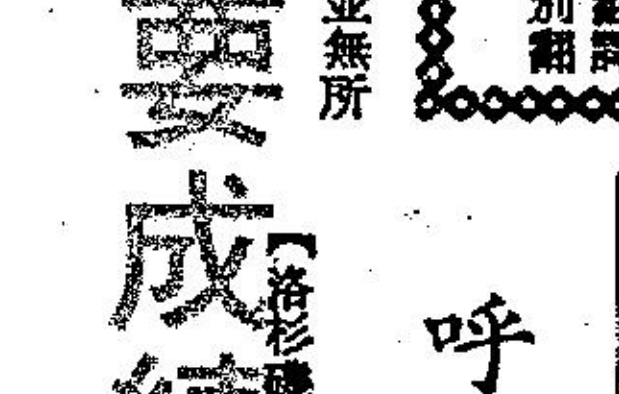 別翻
並無所
呼
【洛杉磯
要成績